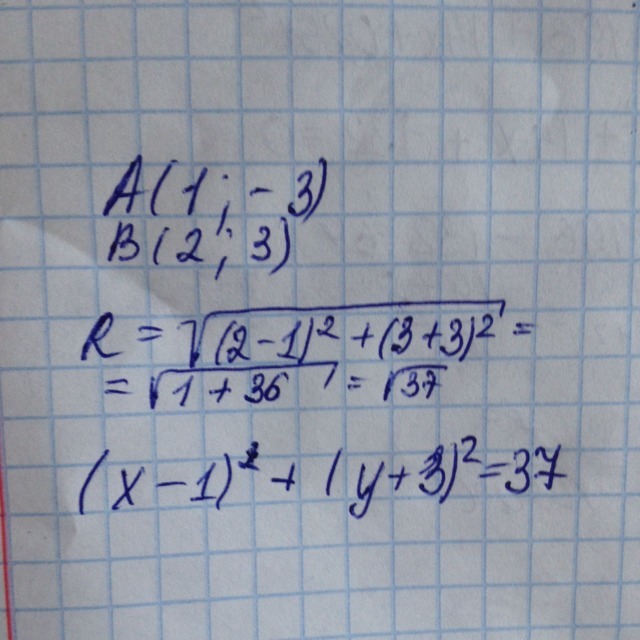 A(1; -3)
B(2; 3)
R = √((2-1)² + (3+3)²) =
= √(1 + 36) = √37
(x - 1)² + (y + 3)² = 37